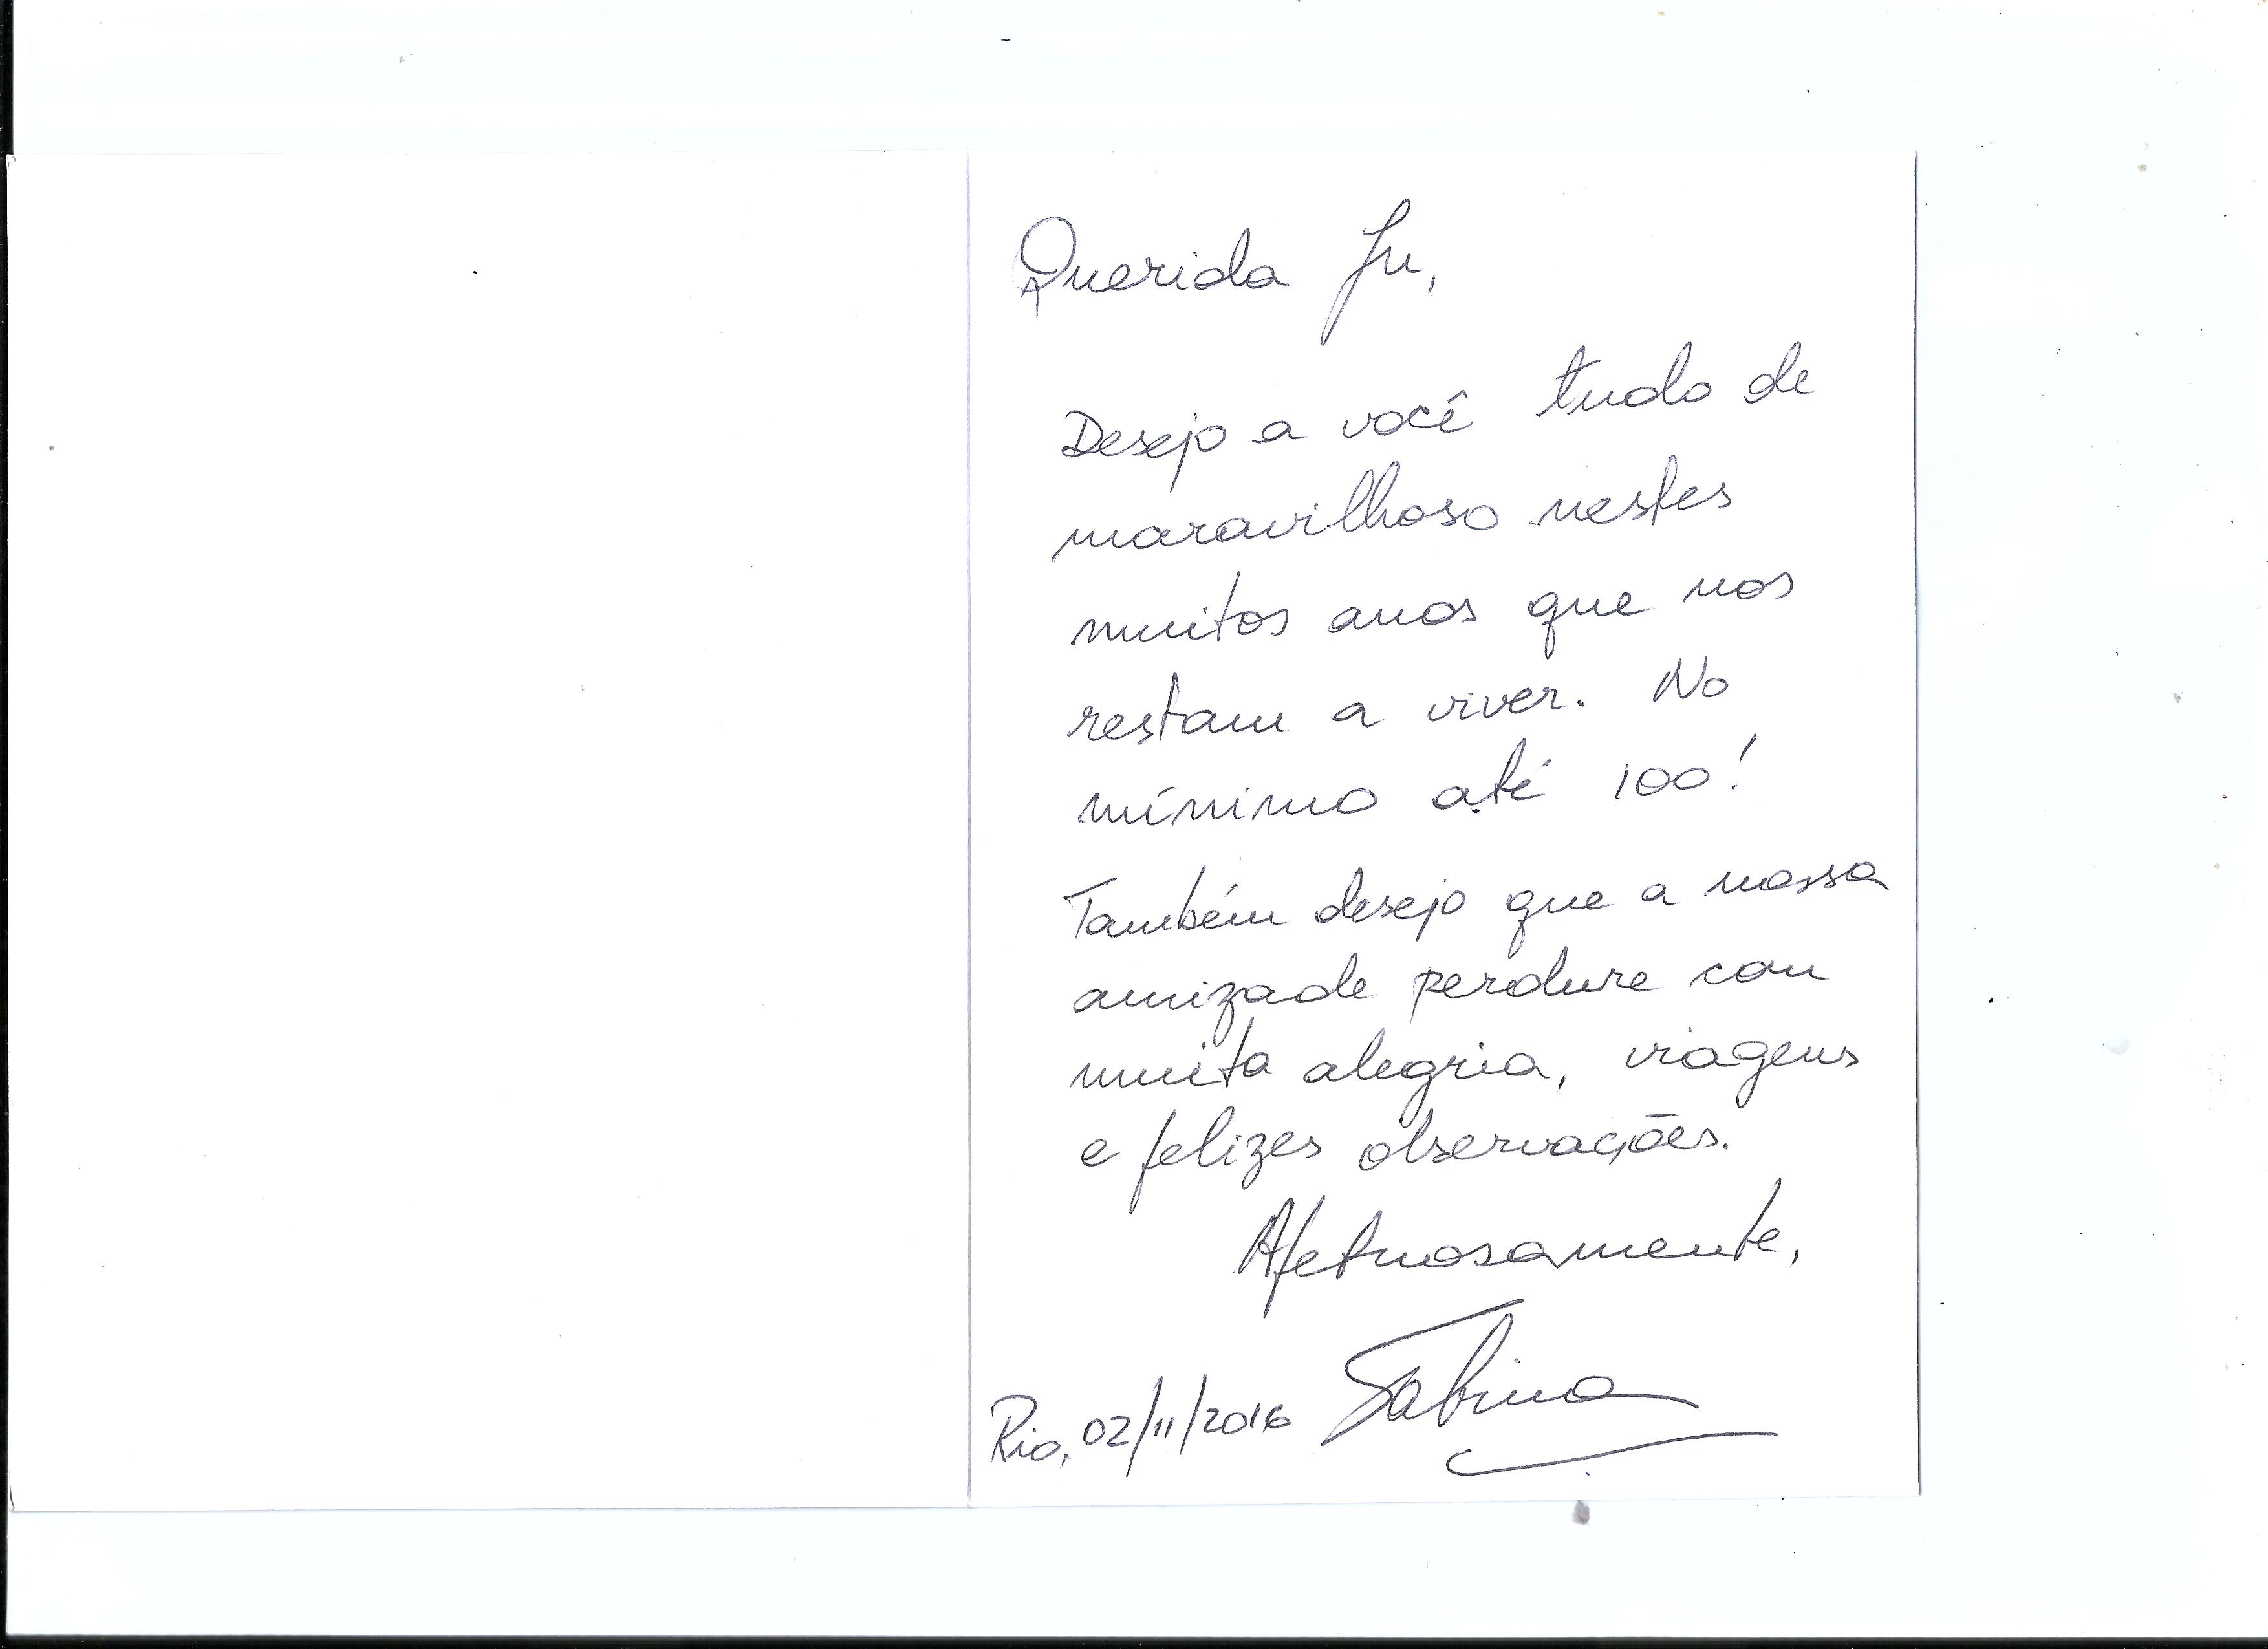 Querida Ju,
Desejo a você tudo de
maravilhoso nestes
muitos anos que nos
restam a viver. No
mínimo até 100!
Também desejo que a nossa
amizade perdure com
muita alegria, viagens
e felizes observações.
Afetuosamente,
Sabina
Rio, 02/11/2016